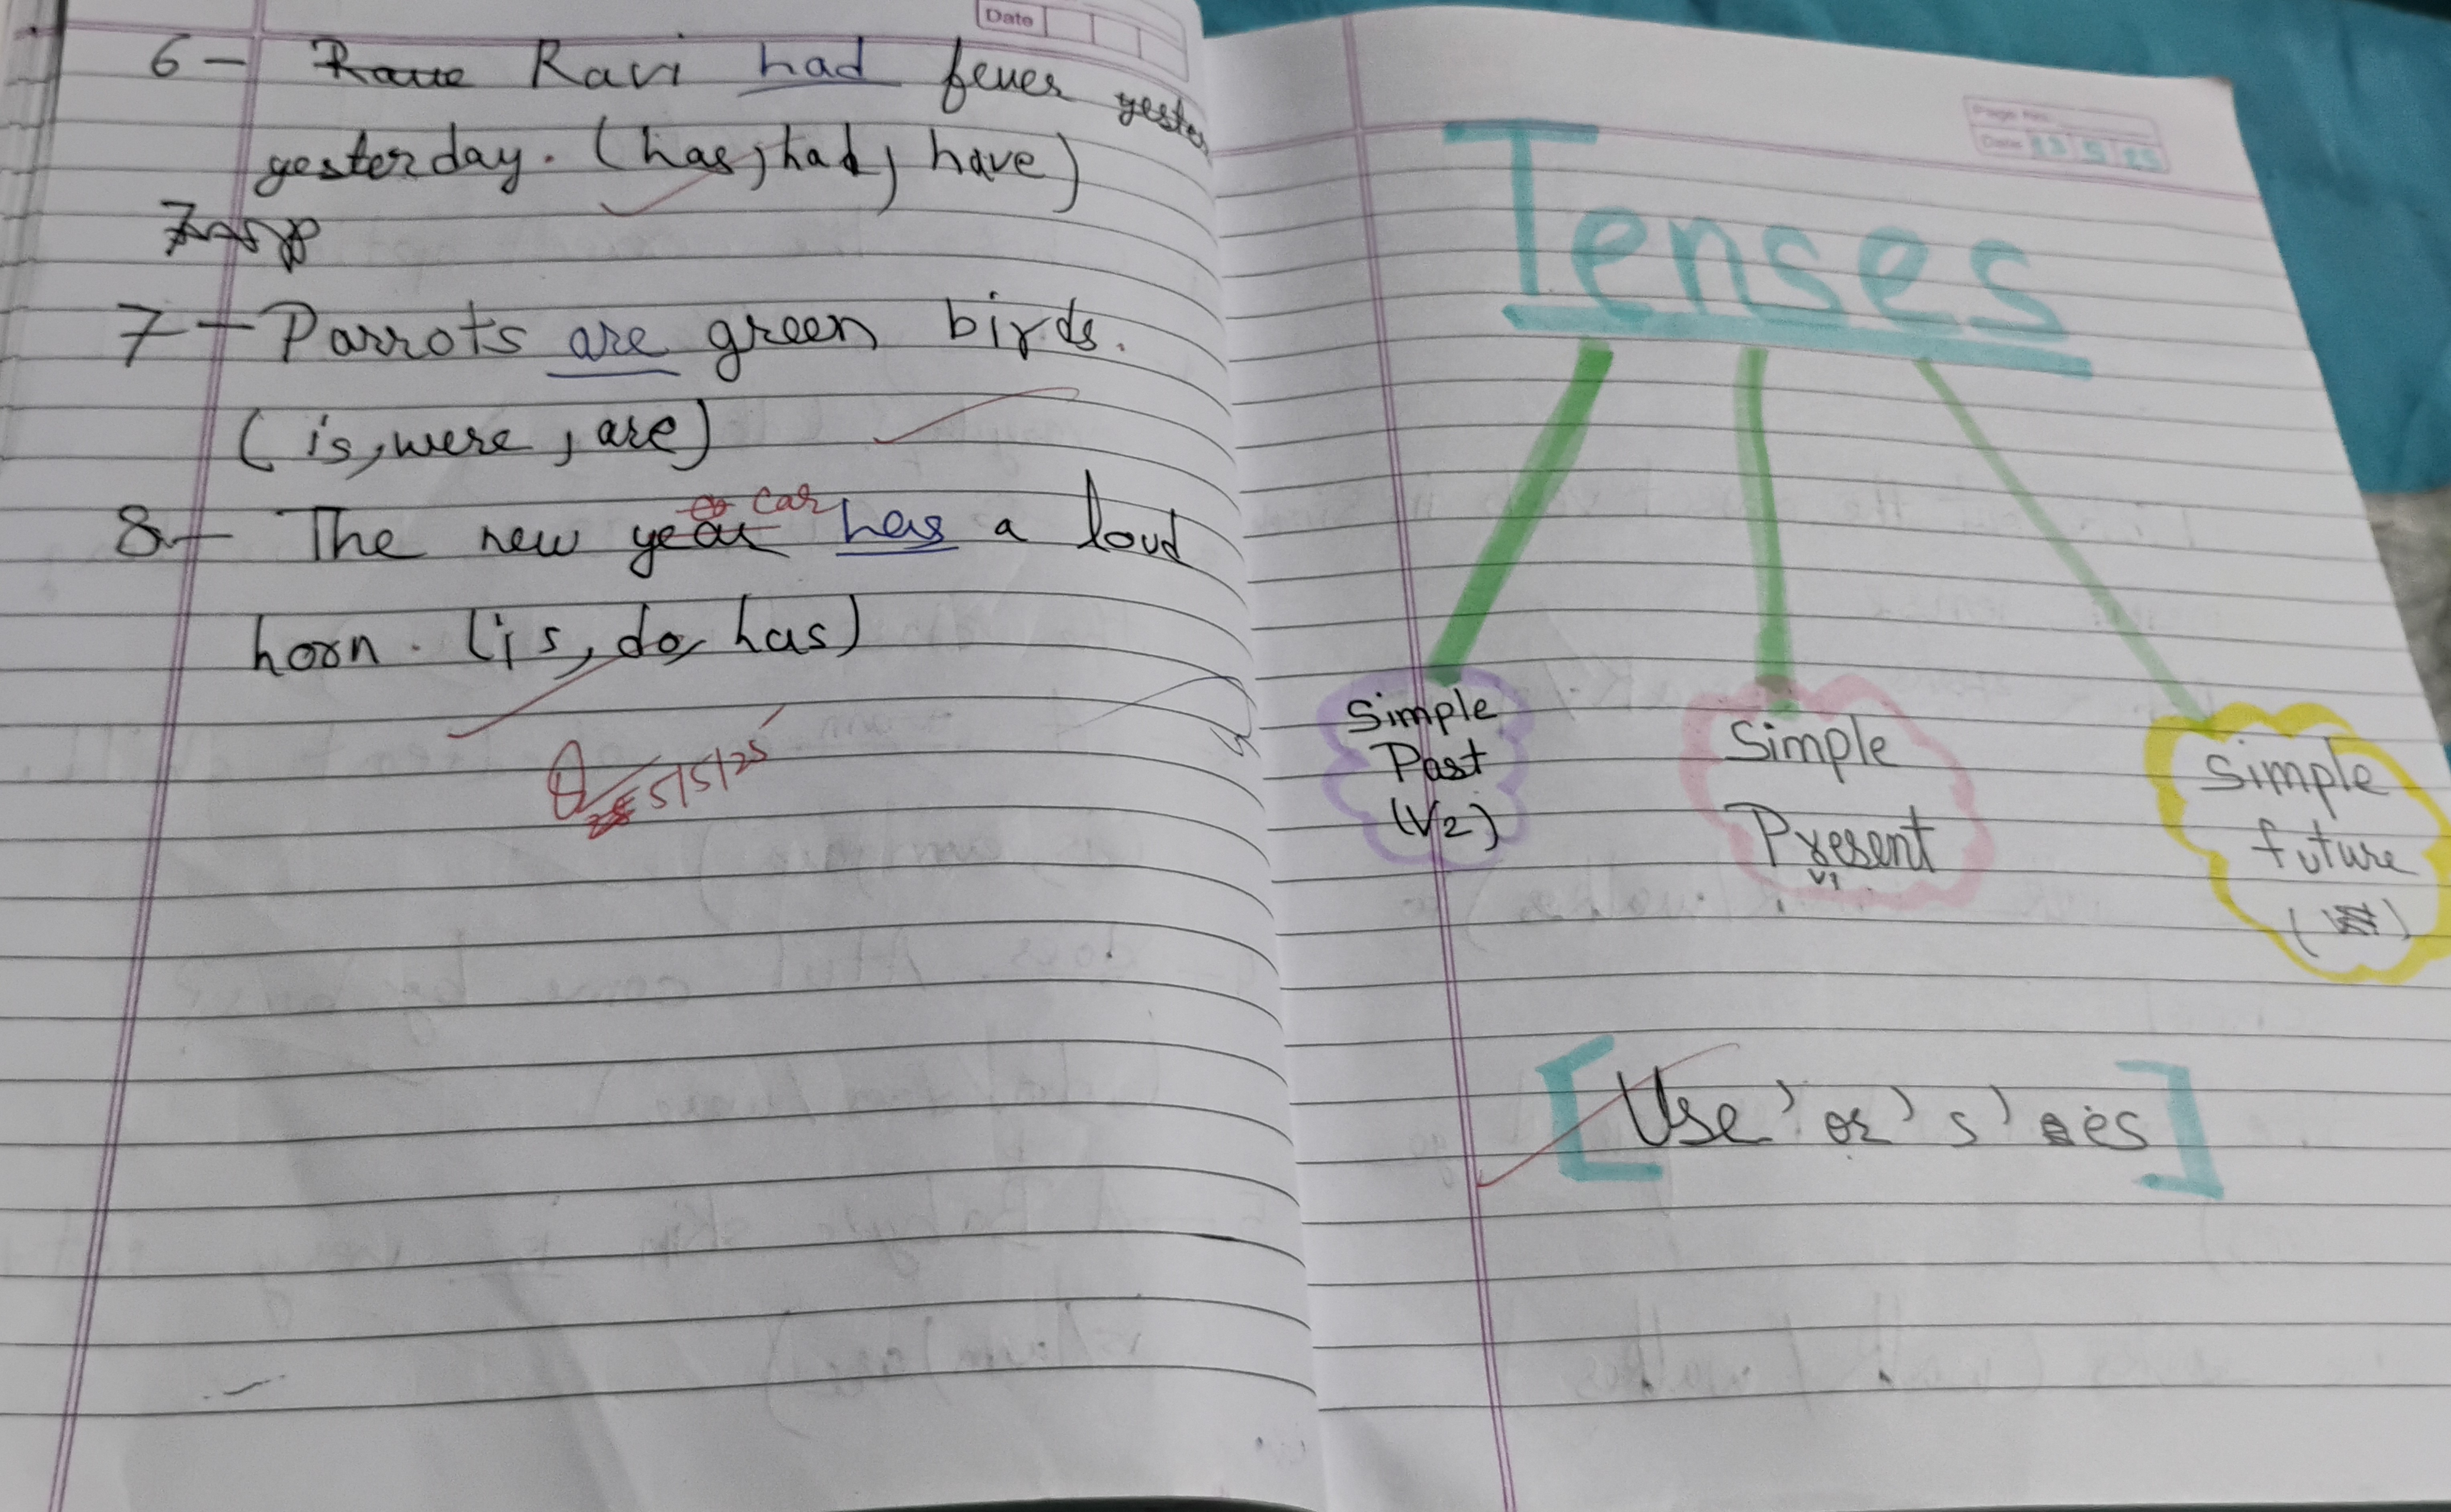 Date
6 - Ravi had fever
yesterday. (has, had, have)
7 - Parrots are green birds.
(is, were, are)
car
8 - The new year has a loud
horn. (is, do, has)
5/5/25
Page No.
Date 13 5 25
Tenses
Simple
Past
(V2)
Simple
Present
V1
Simple
future
[Use ' or ' s ' es]